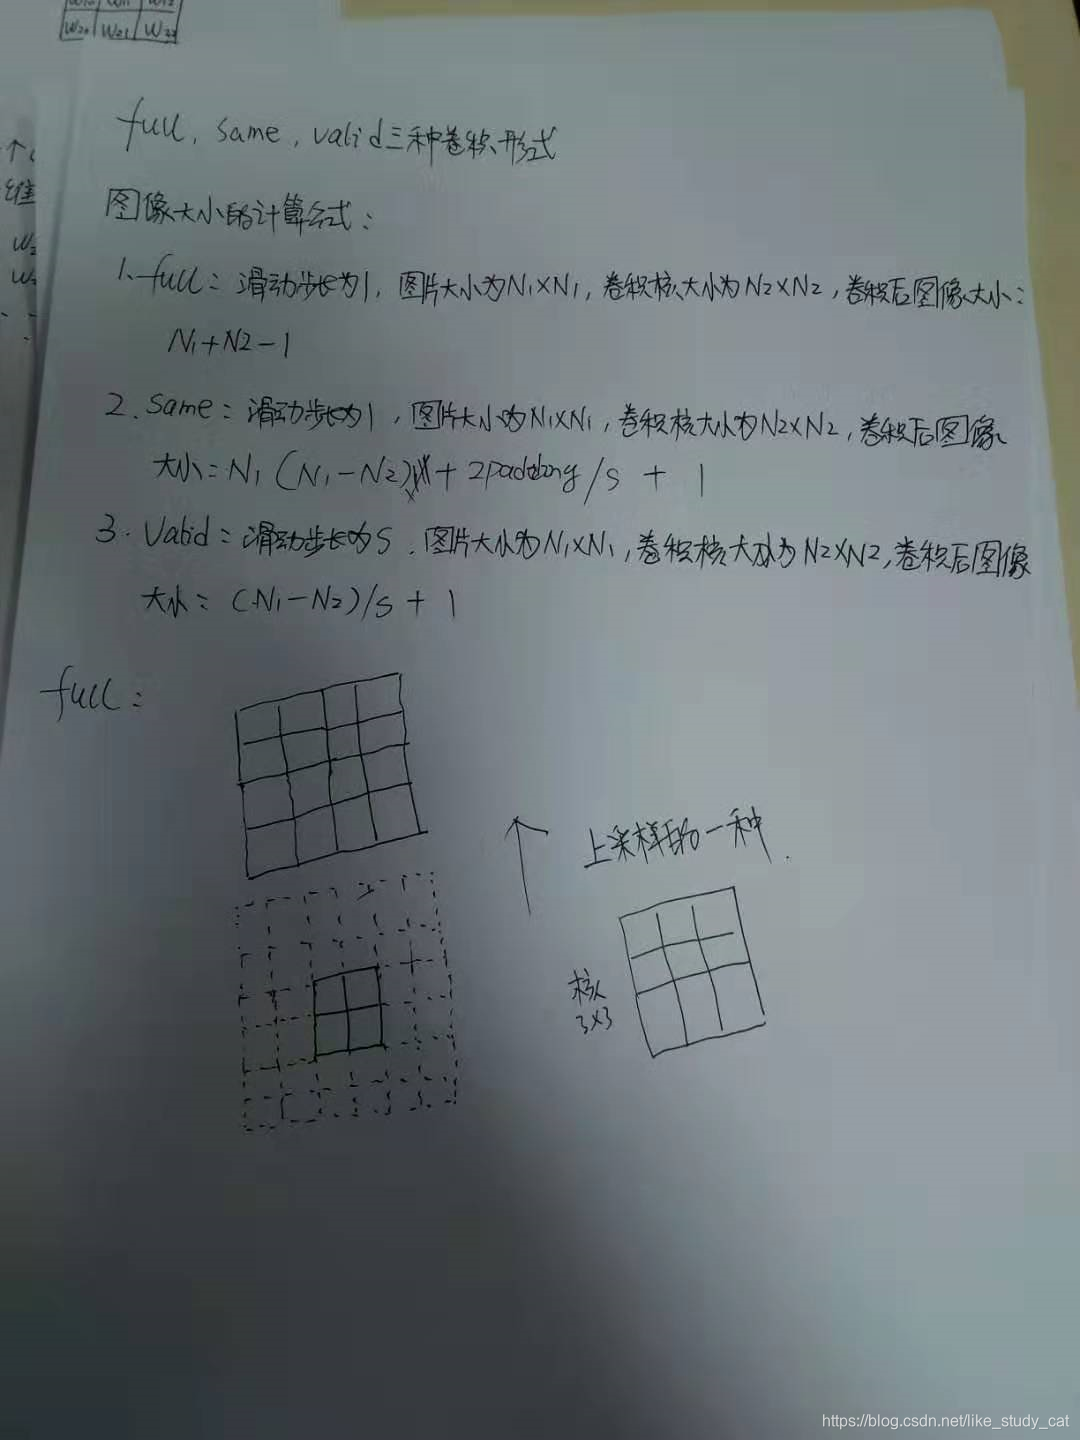 W20 W21 W22
full, same, valid三种卷积形式
图像大小的计算公式:
1. full: 滑动步长为1, 图片大小为N1×N1, 卷积核大小为N2×N2, 卷积后图像大小:
N1+N2-1
2. Same: 滑动步长为1, 图片大小为N1×N1, 卷积核大小为N2×N2, 卷积后图像
大小: N1 (N1-N2) + 2padding/s + 1
3. Valid: 滑动步长为S, 图片大小为N1×N1, 卷积核大小为N2×N2, 卷积后图像
大小: (N1-N2)/s + 1
full:
上采样的一种.
核
3×3
https://blog.csdn.net/like_study_cat